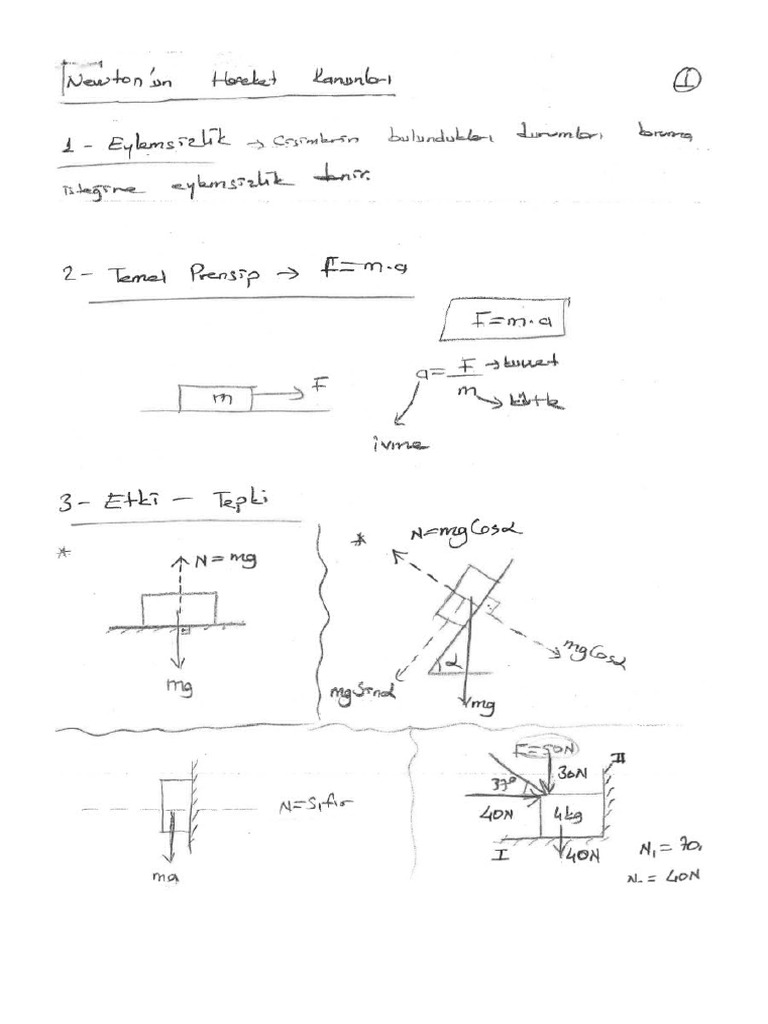 Newton'un Hareket Kanunları
1
1 - Eylemsizlik → Cisimlerin bulundukları durumları koruma
isteğine eylemsizlik denir.
2 - Temel Prensip → F=m.a
F=m.a
a = F → kuvvet
m → kütle
ivme
m F
3 - Etki - Tepki
* N=mg
mg
* N=mgCosα
mgCosα
mgSinα
α
mg
N=Sıfır
mg
F=50N
II
37° 30N
40N 4kg
I 40N
N₁ = 70
N = 40N